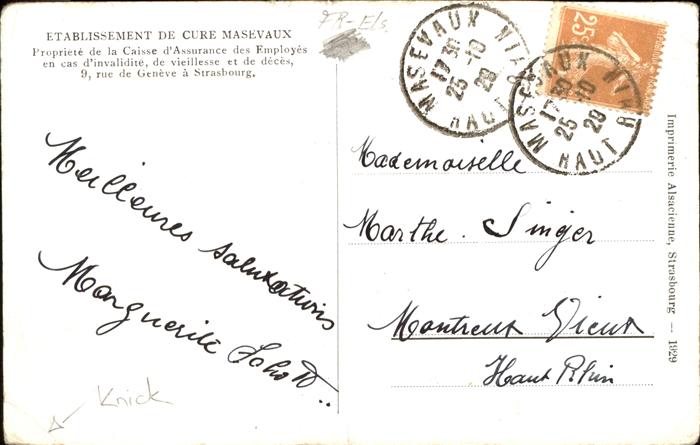 ETABLISSEMENT DE CURE MASEVAUX
Propriété de la Caisse d'Assurance des Employés
en cas d'invalidité, de vieillesse et de décès,
9, rue de Genève à Strasbourg.
Meilleures salutations
Marguerite
Knick
MASEVAUX HAUT RHIN
17 30
25 - 10
29
MASEVAUX HAUT RHIN
17 30
25 10
29
25c
Mademoiselle
Marthe Singer
Montreux Vieux
Haut Rhin
Imprimerie Alsacienne, Strasbourg — 1929